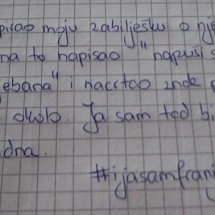 pisao moju zabilješku o nje
na to napisao "napuši s
ebana" i nacrtao znak
okolo. Ja sam tad b
dna.
#ijasamfran